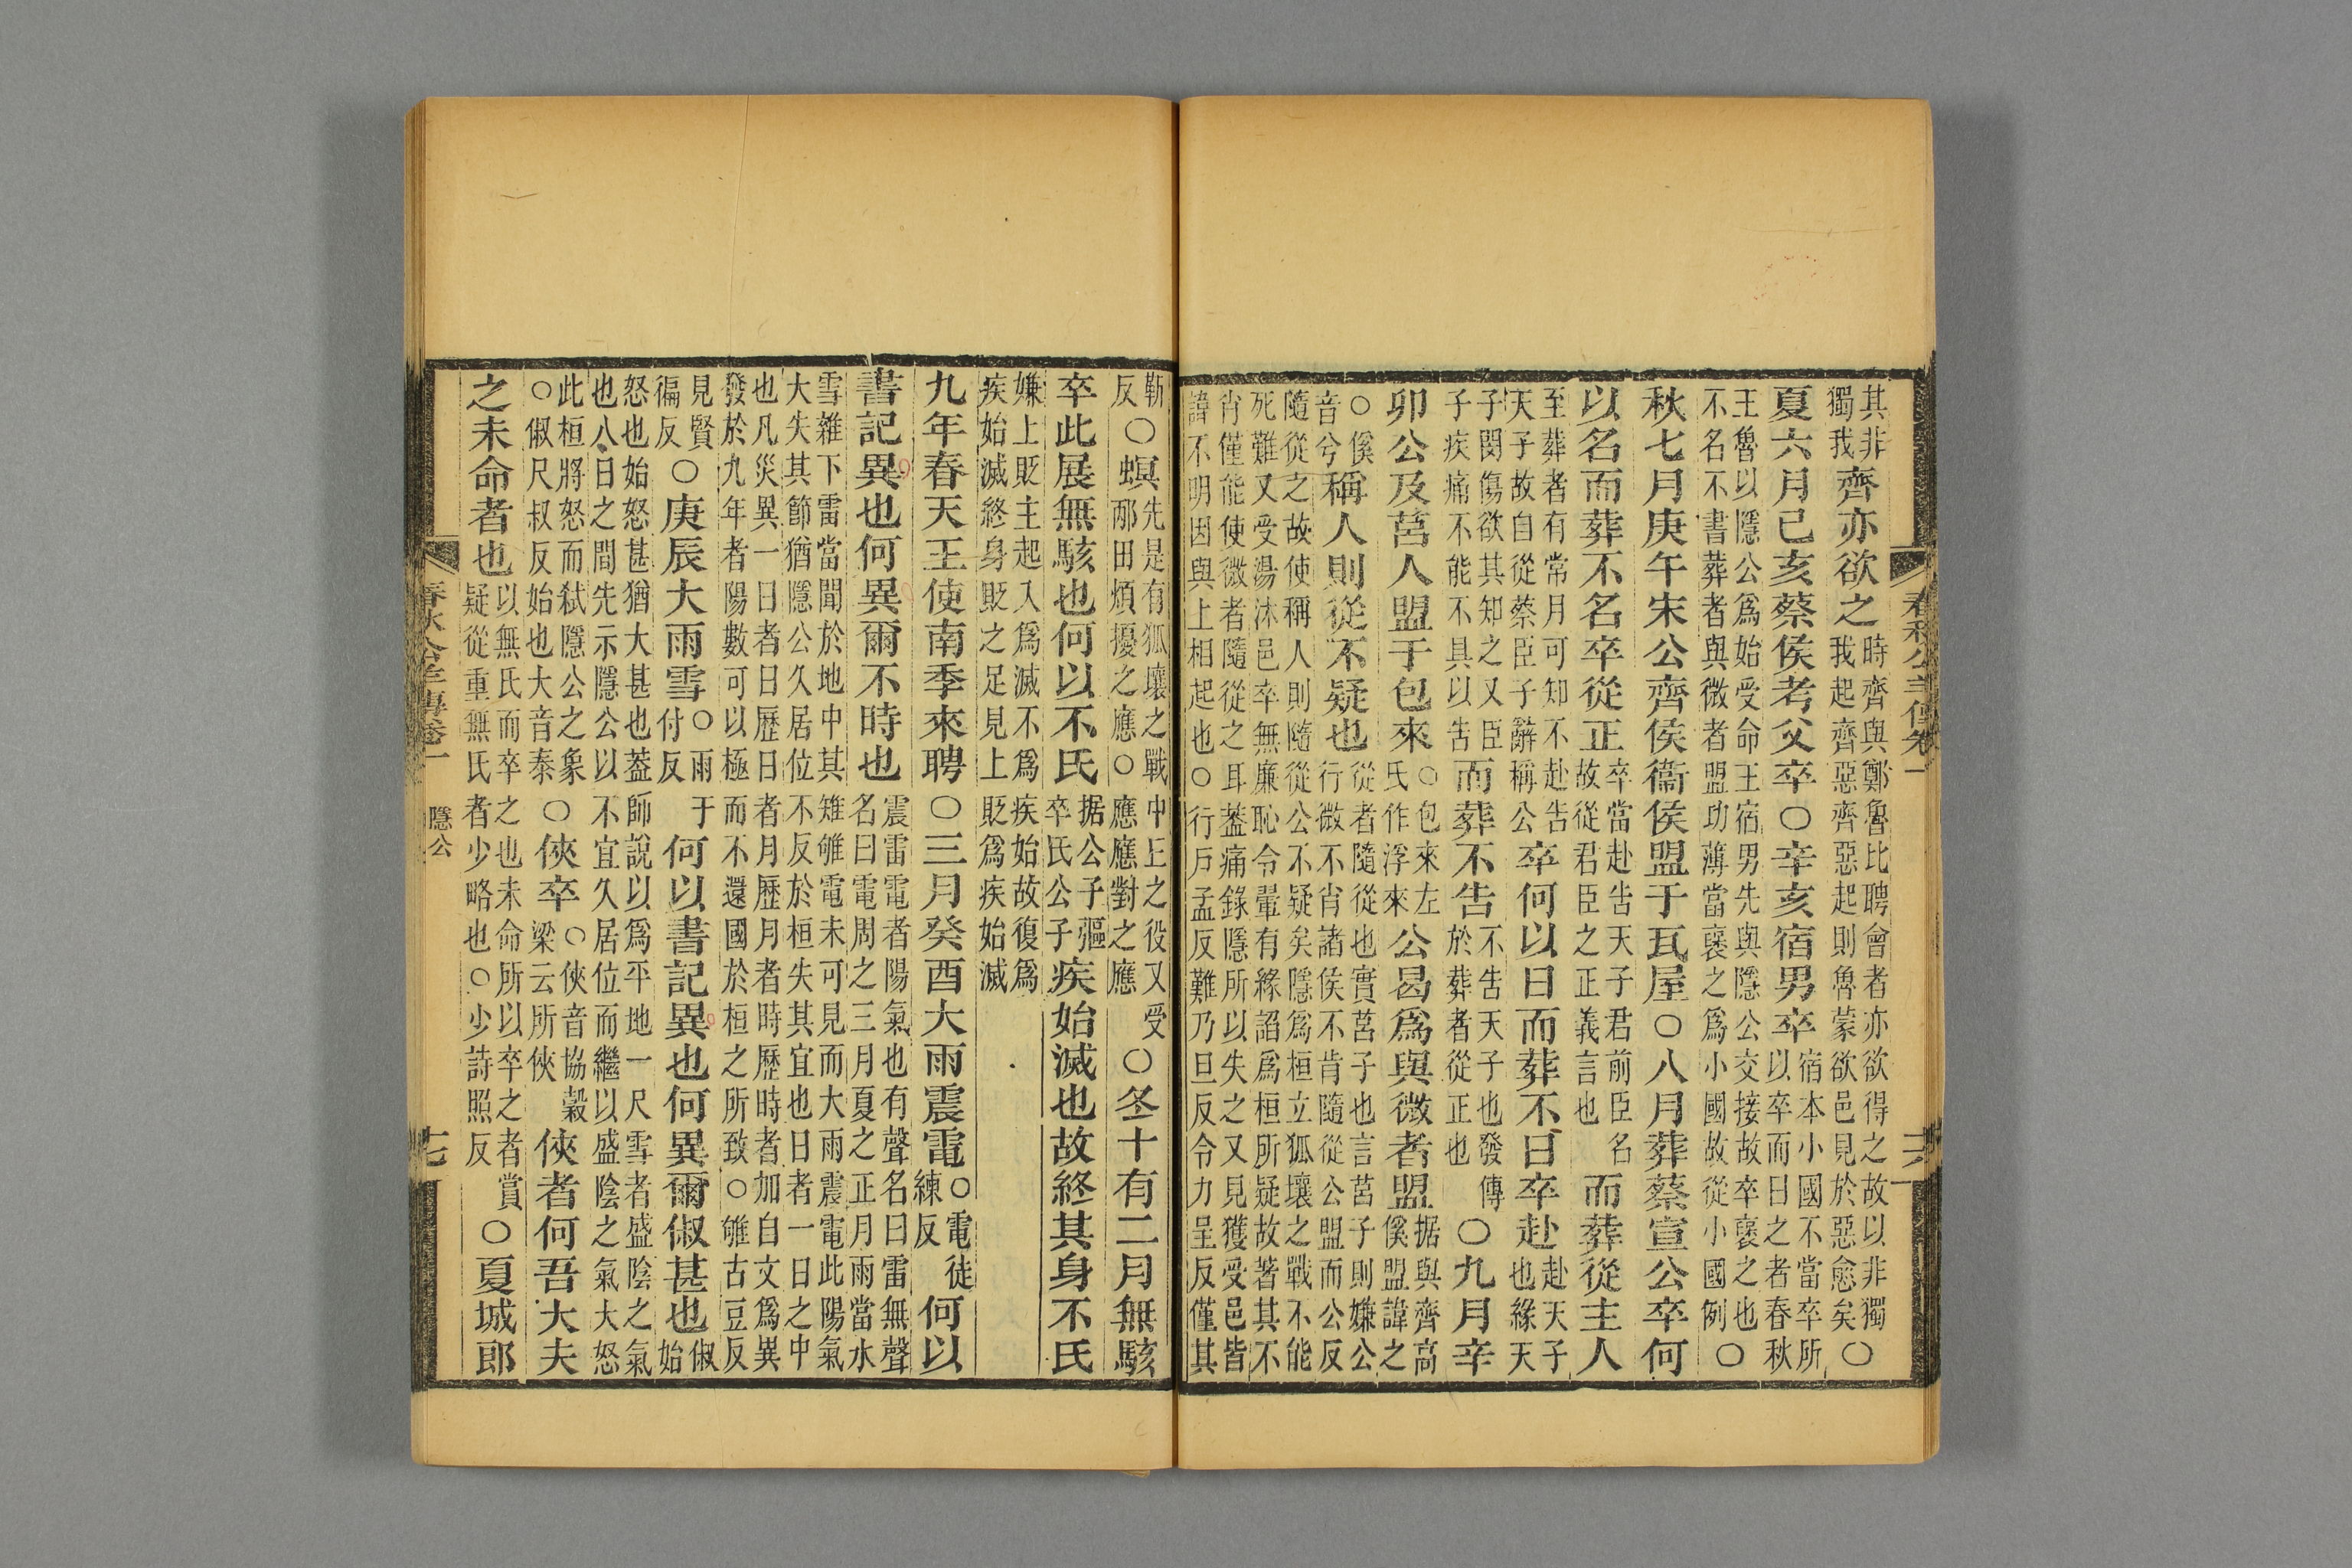 其非獨我齊亦欲之時齊與鄭魯比聘會者亦欲得之故以非獨我起齊惡齊惡起則魯蒙欲邑見於惡愈矣〇
夏六月己亥蔡侯考父卒〇辛亥宿男卒宿本小國不當卒所以卒而日之者春秋
王魯以隱公爲始受命王宿男先與隱公交接故卒襃之也不名不書葬者與微者盟功薄當襃之爲小國故從小國例〇
秋七月庚午宋公齊侯衞侯盟于瓦屋〇八月葬蔡宣公卒何
以名而葬不名卒從正卒當赴告天子君前臣名故從君臣之正義言也而葬從主人
至葬者有常月可知不赴告天子故自從蔡臣子辭稱公卒何以日而葬不日卒赴赴天子也緣天
子閔傷欲其知之又臣子疾痛不能不具以告而葬不告不告天子也發傳於葬者從正也〇九月辛
卯公及莒人盟于包來〇包來左氏作浮來公曷爲與微者盟据與齊高傒盟諱之
〇傒音兮稱人則從不疑也從者隨從也實莒子也言莒子則嫌公行微不肖諸侯不肯隨從公盟而公反
隨從之故使稱人則隨從公不疑矣隱爲桓立狐壤之戰不能死難又受湯沐邑卒無廉恥令翬有緣諂爲桓所疑故著其不
肖僅能使微者隨從之耳蓋痛錄隱所以失之又見獲受邑皆諱不明因與上相起也〇行戶孟反難乃旦反令力呈反僅其
春秋公羊傳卷一
十六
靳反〇螟先是有狐壤之戰中丘之役又受邴田煩擾之應〇應應對之應〇冬十有二月無駭
卒此展無駭也何以不氏据公子彄卒氏公子疾始滅也故終其身不氏
嫌上貶主起入爲滅不爲疾始故復爲疾始滅終身貶之足見上貶爲疾始滅
九年春天王使南季來聘〇三月癸酉大雨震電〇電徒練反何以
書記異也何異爾不時也震雷電者陽氣也有聲名曰雷無聲名曰電周之三月夏之正月雨當水
雪雜下雷當聞於地中其雉雊電未可見而大雨震電此陽氣大失其節猶隱公久居位不反於桓失其宜也日者一日之中
也凡災異一日者日歷日者月歷月者時歷時者加自文爲異發於九年者陽數可以極而不還國於桓之所致〇雊古豆反
見賢徧反〇庚辰大雨雪〇雨于付反何以書記異也何異爾俶甚也俶始
怒也始怒甚猶大甚也葢師說以爲平地一尺雪者盛陰之氣也八日之間先示隱公以不宜久居位而繼以盛陰之氣大怒
此桓將怒而弑隱公之象〇俶尺叔反始也大音泰〇俠卒〇俠音協穀梁云所俠俠者何吾大夫
之未命者也以無氏而卒之也未命所以卒之者賞疑從重無氏者少略也〇少詩照反〇夏城郎
春秋公羊傳卷一
隱公
十七